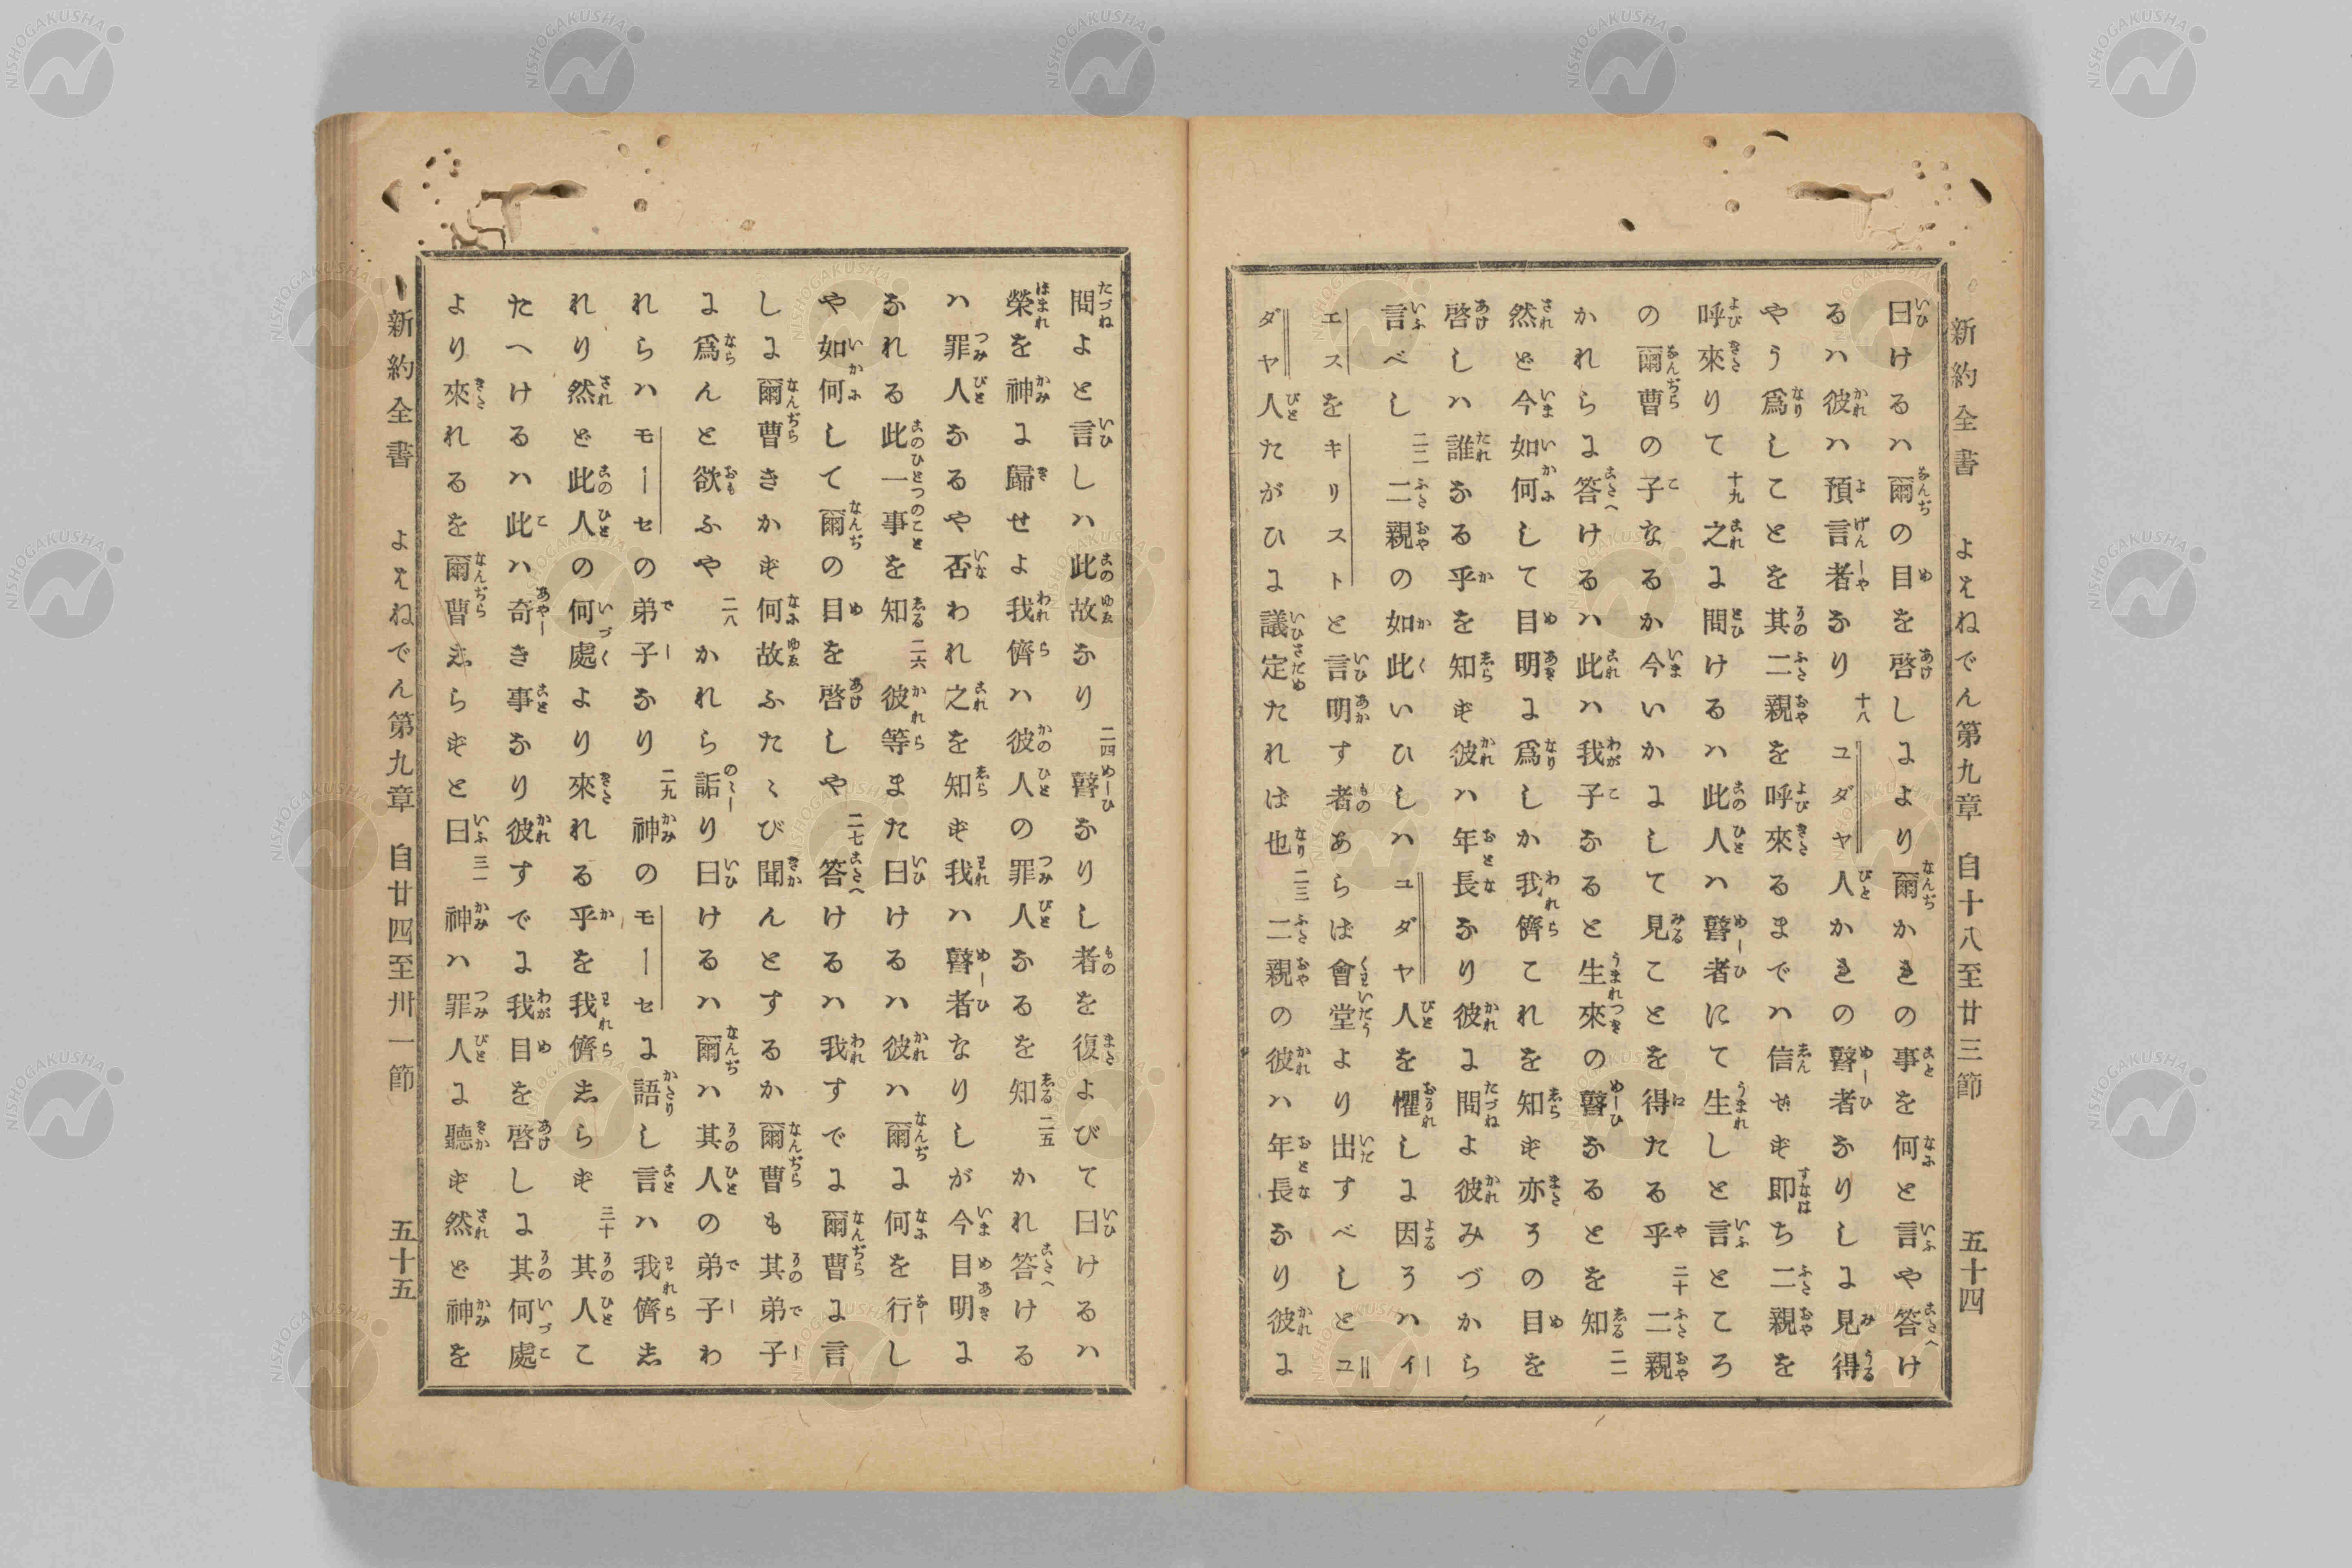 新約全書 よはねでん第九章 自十八至廿三節 五十四
曰けるハ爾の目を啓しにより爾かれの事を何と言や答け
るハ彼ハ預言者なり 十八 ユダヤ人かれの瞽者なりしに見得
やう爲しことを其二親を呼來るまでハ信せず即ち二親を
呼來りて 十九 之に問けるハ此人ハ瞽者にて生しと言ところ
の爾曹の子なるか今いかにして見ことを得たる乎 二十 二親
かれらに答けるハ此ハ我子なると生來の瞽なるとを知 二一
然ど今如何して目明に爲しか我儕これを知ず亦その目を
啓しハ誰なる乎を知ず彼ハ年長なり彼に問よ彼みづから
言べし 二二 二親の如此いひしハユダヤ人を懼しに因そハイ
エスをキリストと言明す者あらば會堂より出すべしとユ
ダヤ人たがひに議定たれば也 二三 二親の彼ハ年長なり彼に
問よと言しハ此故なり 二四 瞽なりし者を復よびて曰けるハ
榮を神に歸せよ我儕ハ彼人の罪人なるを知 二五 かれ答ける
ハ罪人なるや否われ之を知ず我ハ瞽者なりしが今目明に
なれる此一事を知 二六 彼等また曰けるハ彼ハ爾に何を行し
や如何して爾の目を啓しや 二七 答けるハ我すでに爾曹に言
しに爾曹きかず何故ふたゝび聞んとするか爾曹も其弟子
に爲んと欲ふや 二八 かれら詬り曰けるハ爾ハ其人の弟子わ
れらハモーセの弟子なり 二九 神のモーセに語し言ハ我儕志
れり然ど此人の何處より來れる乎を我儕志らず 三十 其人こ
たへけるハ此ハ奇き事なり彼すでに我目を啓しに其何處
より來れるを爾曹志らずと曰 三一 神ハ罪人に聽ず然ど神を
新約全書 よはねでん第九章 自廿四至卅一節 五十五
NISHOGAKUSHA